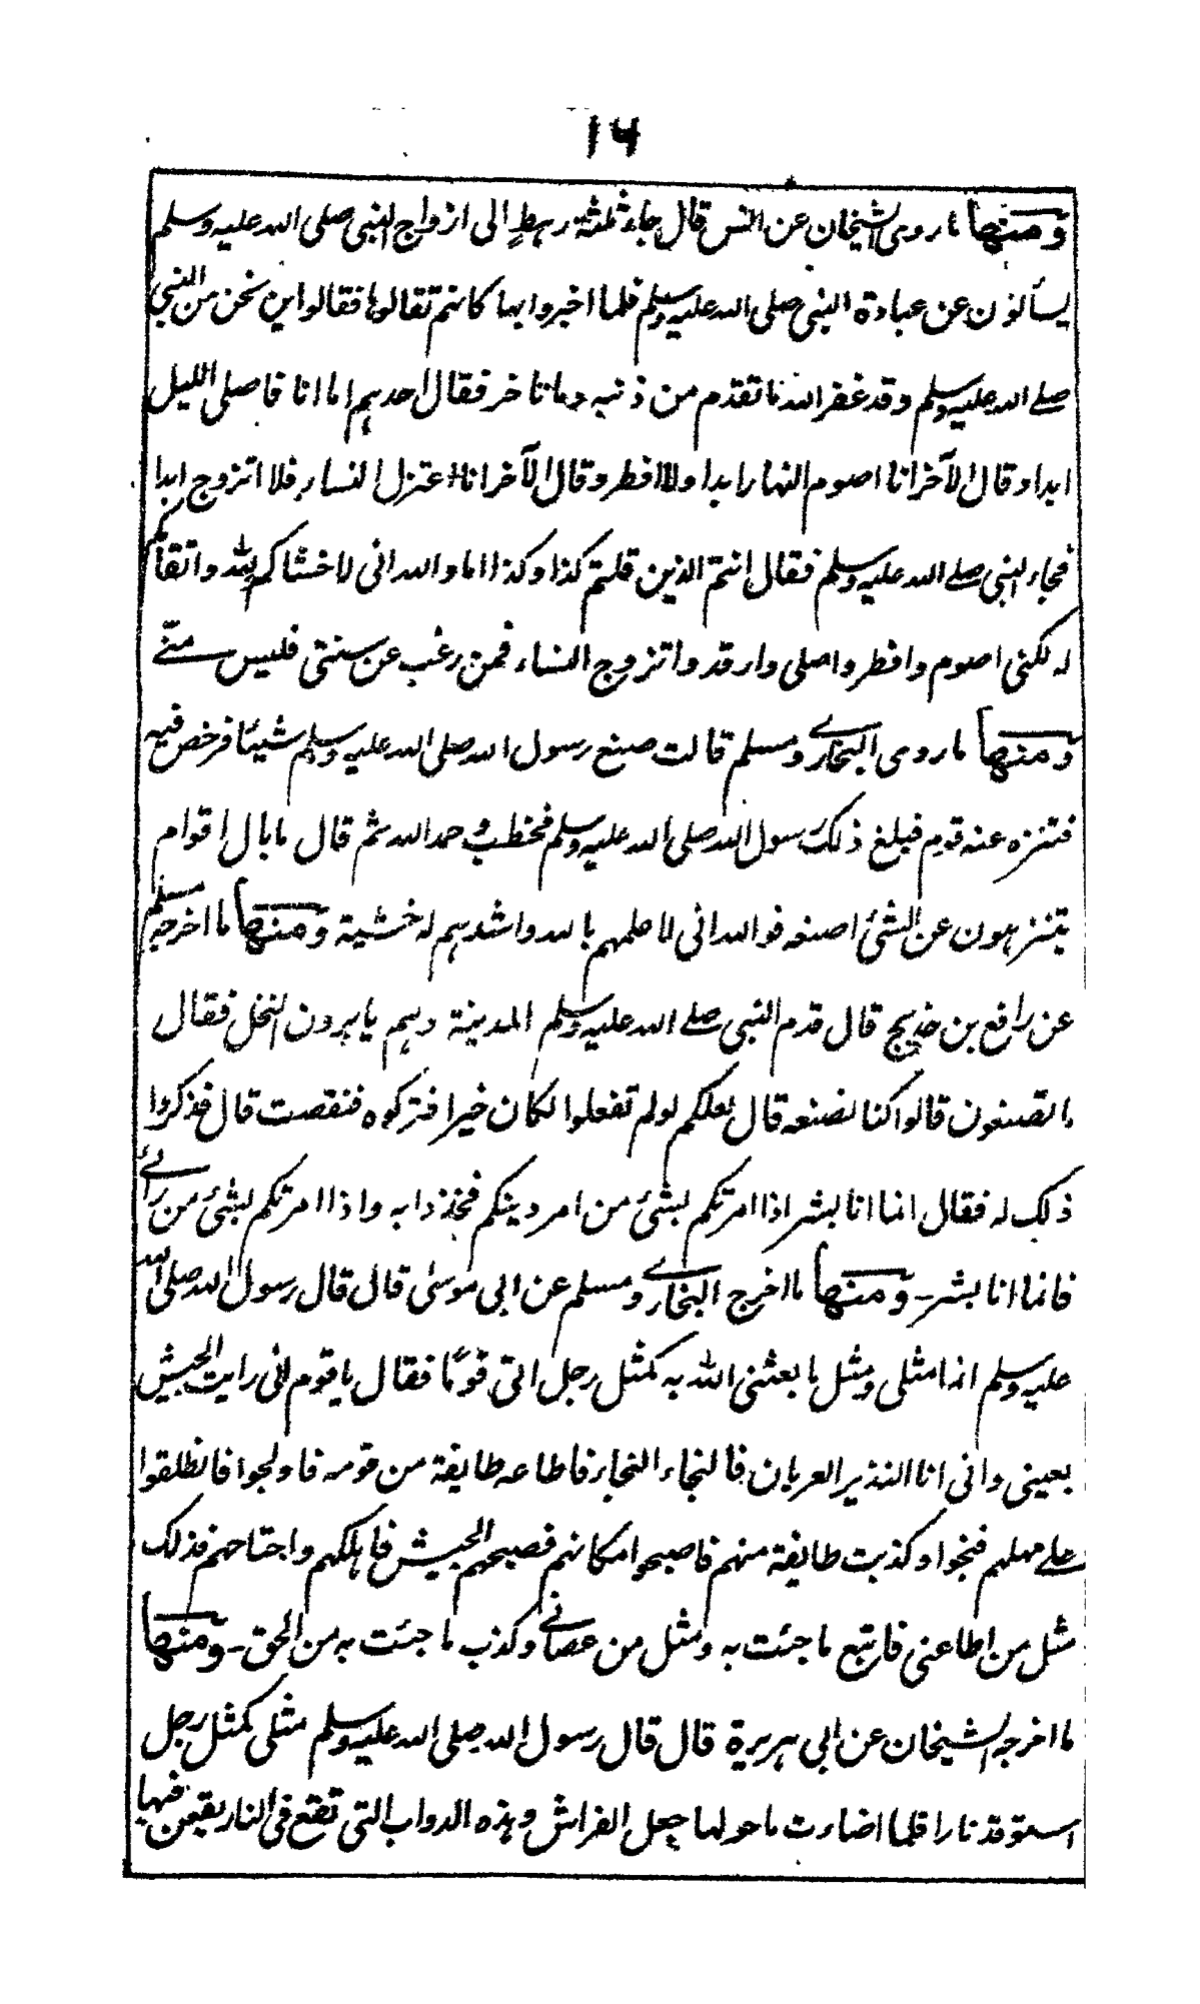 ١٦
ومنها ما روى الشيخان عن انس قال جاء ثلثة رهط الى ازواج النبى صلى الله عليه وسلم
يسألون عن عبادة النبى صلى الله عليه وسلم فلما اخبروا بها كانهم تقالوها فقالوا اين نحن من النبى
صلى الله عليه وسلم وقد غفر الله ما تقدم من ذنبه وما تاخر فقال احدهم اما انا فاصلى الليل
ابدا وقال الآخر انا اصوم النهار ابدا ولا افطر وقال الآخر انا اعتزل النساء فلا اتزوج ابدا
فجاء النبى صلى الله عليه وسلم فقال انتم الذين قلتم كذا وكذا اما والله انى لاخشاكم لله واتقاكم
له لكنى اصوم وافطر واصلى وارقد واتزوج النساء فمن رغب عن سنتى فليس منى
ومنها ما روى البخارى ومسلم قالت صنع رسول الله صلى الله عليه وسلم شيئا فرخص فيه
فتنزه عنه قوم فبلغ ذلك رسول الله صلى الله عليه وسلم فخطب وحمد الله ثم قال ما بال اقوام
يتنزهون عن الشئ اصنعه فوالله انى لاعلمهم بالله واشدهم له خشية ومنها ما اخرجه مسلم
عن رافع بن خديج قال قدم النبى صلى الله عليه وسلم المدينة وهم يابرون النخل فقال
ما تصنعون قالوا كنا نصنعه قال لعلكم لو لم تفعلوا لكان خيرا فتركوه فنقصت قال فذكروا
ذلك له فقال انما انا بشر اذا امرتكم بشئ من امر دينكم فخذوا به واذا امرتكم بشئ من رائى
فانما انا بشر ـ ومنها ما اخرج البخارى ومسلم عن ابى موسى قال قال رسول الله صلى الله
عليه وسلم انما مثلى ومثل ما بعثنى الله به كمثل رجل اتى قوما فقال يا قوم انى رايت الجيش
بعينى وانى انا النذير العريان فالنجاء النجاء فاطاعه طايفة من قومه فاولجوا فانطلقوا
على مهلهم فنجوا وكذبت طايفة منهم فاصبحوا مكانهم فصبحهم الجيش فاهلكهم واجتاحهم فذلك
مثل من اطاعنى فاتبع ما جئت به ومثل من عصانى وكذب ما جئت به من الحق ـ ومنها
ما اخرجه الشيخان عن ابى هريرة قال قال رسول الله صلى الله عليه وسلم مثلى كمثل رجل
استوقد نارا فلما اضاءت ما حولها جعل الفراش وهذه الدواب التى تقع فى النار يقعن فيها